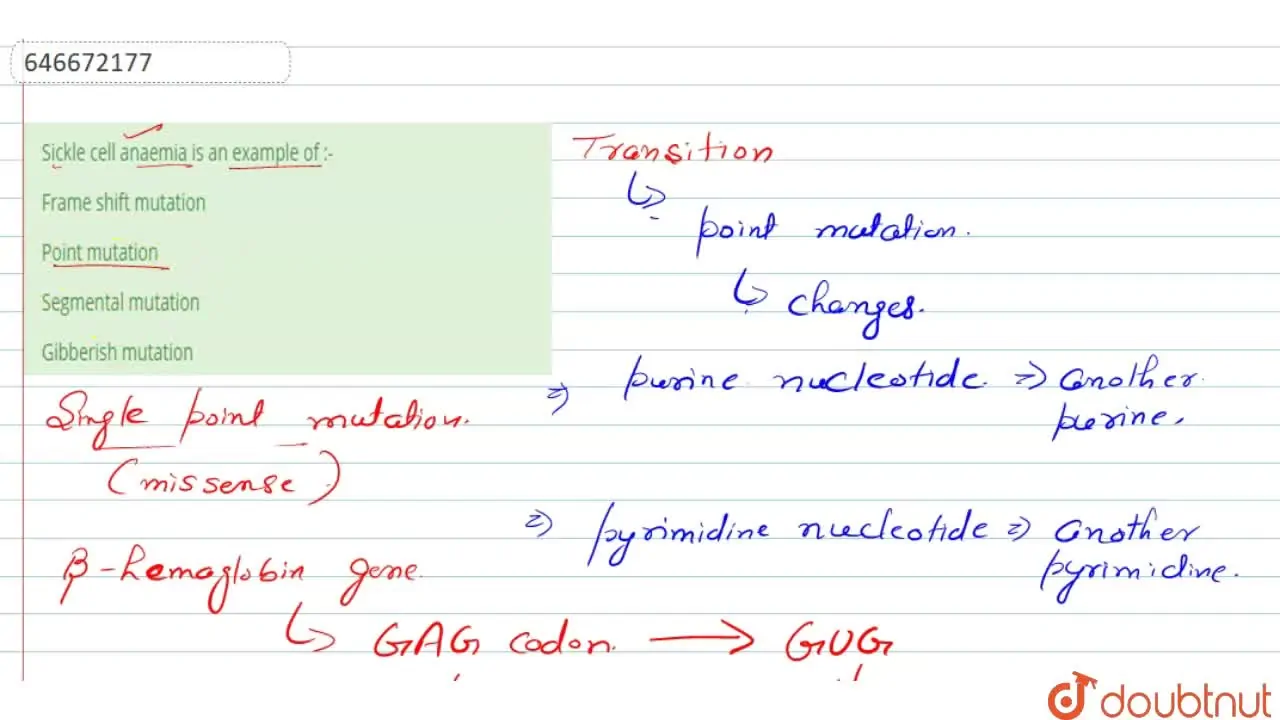 646672177
Sickle cell anaemia is an example of :-
Frame shift mutation
Point mutation
Segmental mutation
Gibberish mutation
Transition
point mutation.
changes.
purine nucleotide. => another
purine.
Single point mutation.
(missense)
pyrimidine nucleotide => another
pyrimidine.
β-hemoglobin gene.
GAG codon. → GUG
doubtnut